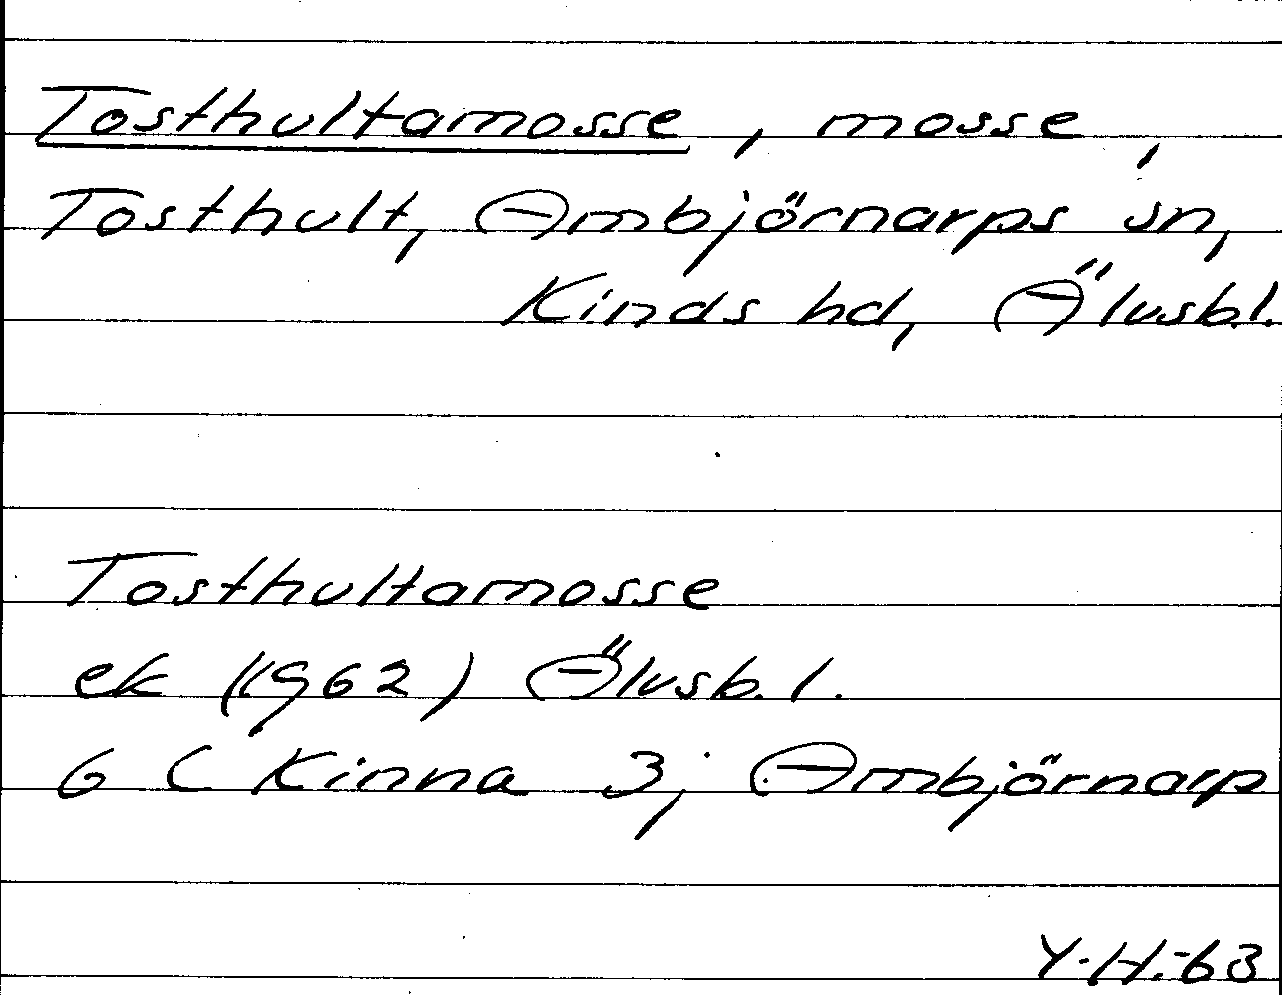 Tosthultamosse, mosse,
Tosthult, Ambjörnarps sn,
Kinds hd, Älvsb.l.
Tosthultamosse
ek (1962) Älvsb. l.
6 C Kinna 3; Ambjörnarp
Y.H.-63